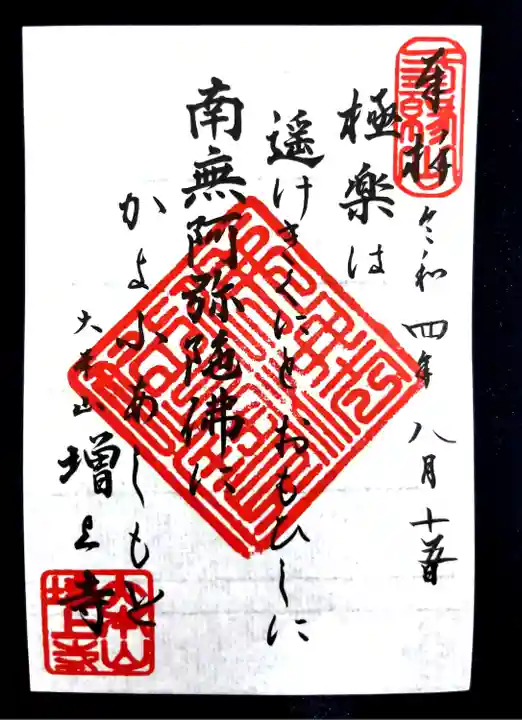 奉拝 令和四年八月十五日
極楽は
遥けきくにとおもひしに
南無阿弥陀佛に
かよふあしもと
大本山 増上寺
三縁山
大本山
増上寺